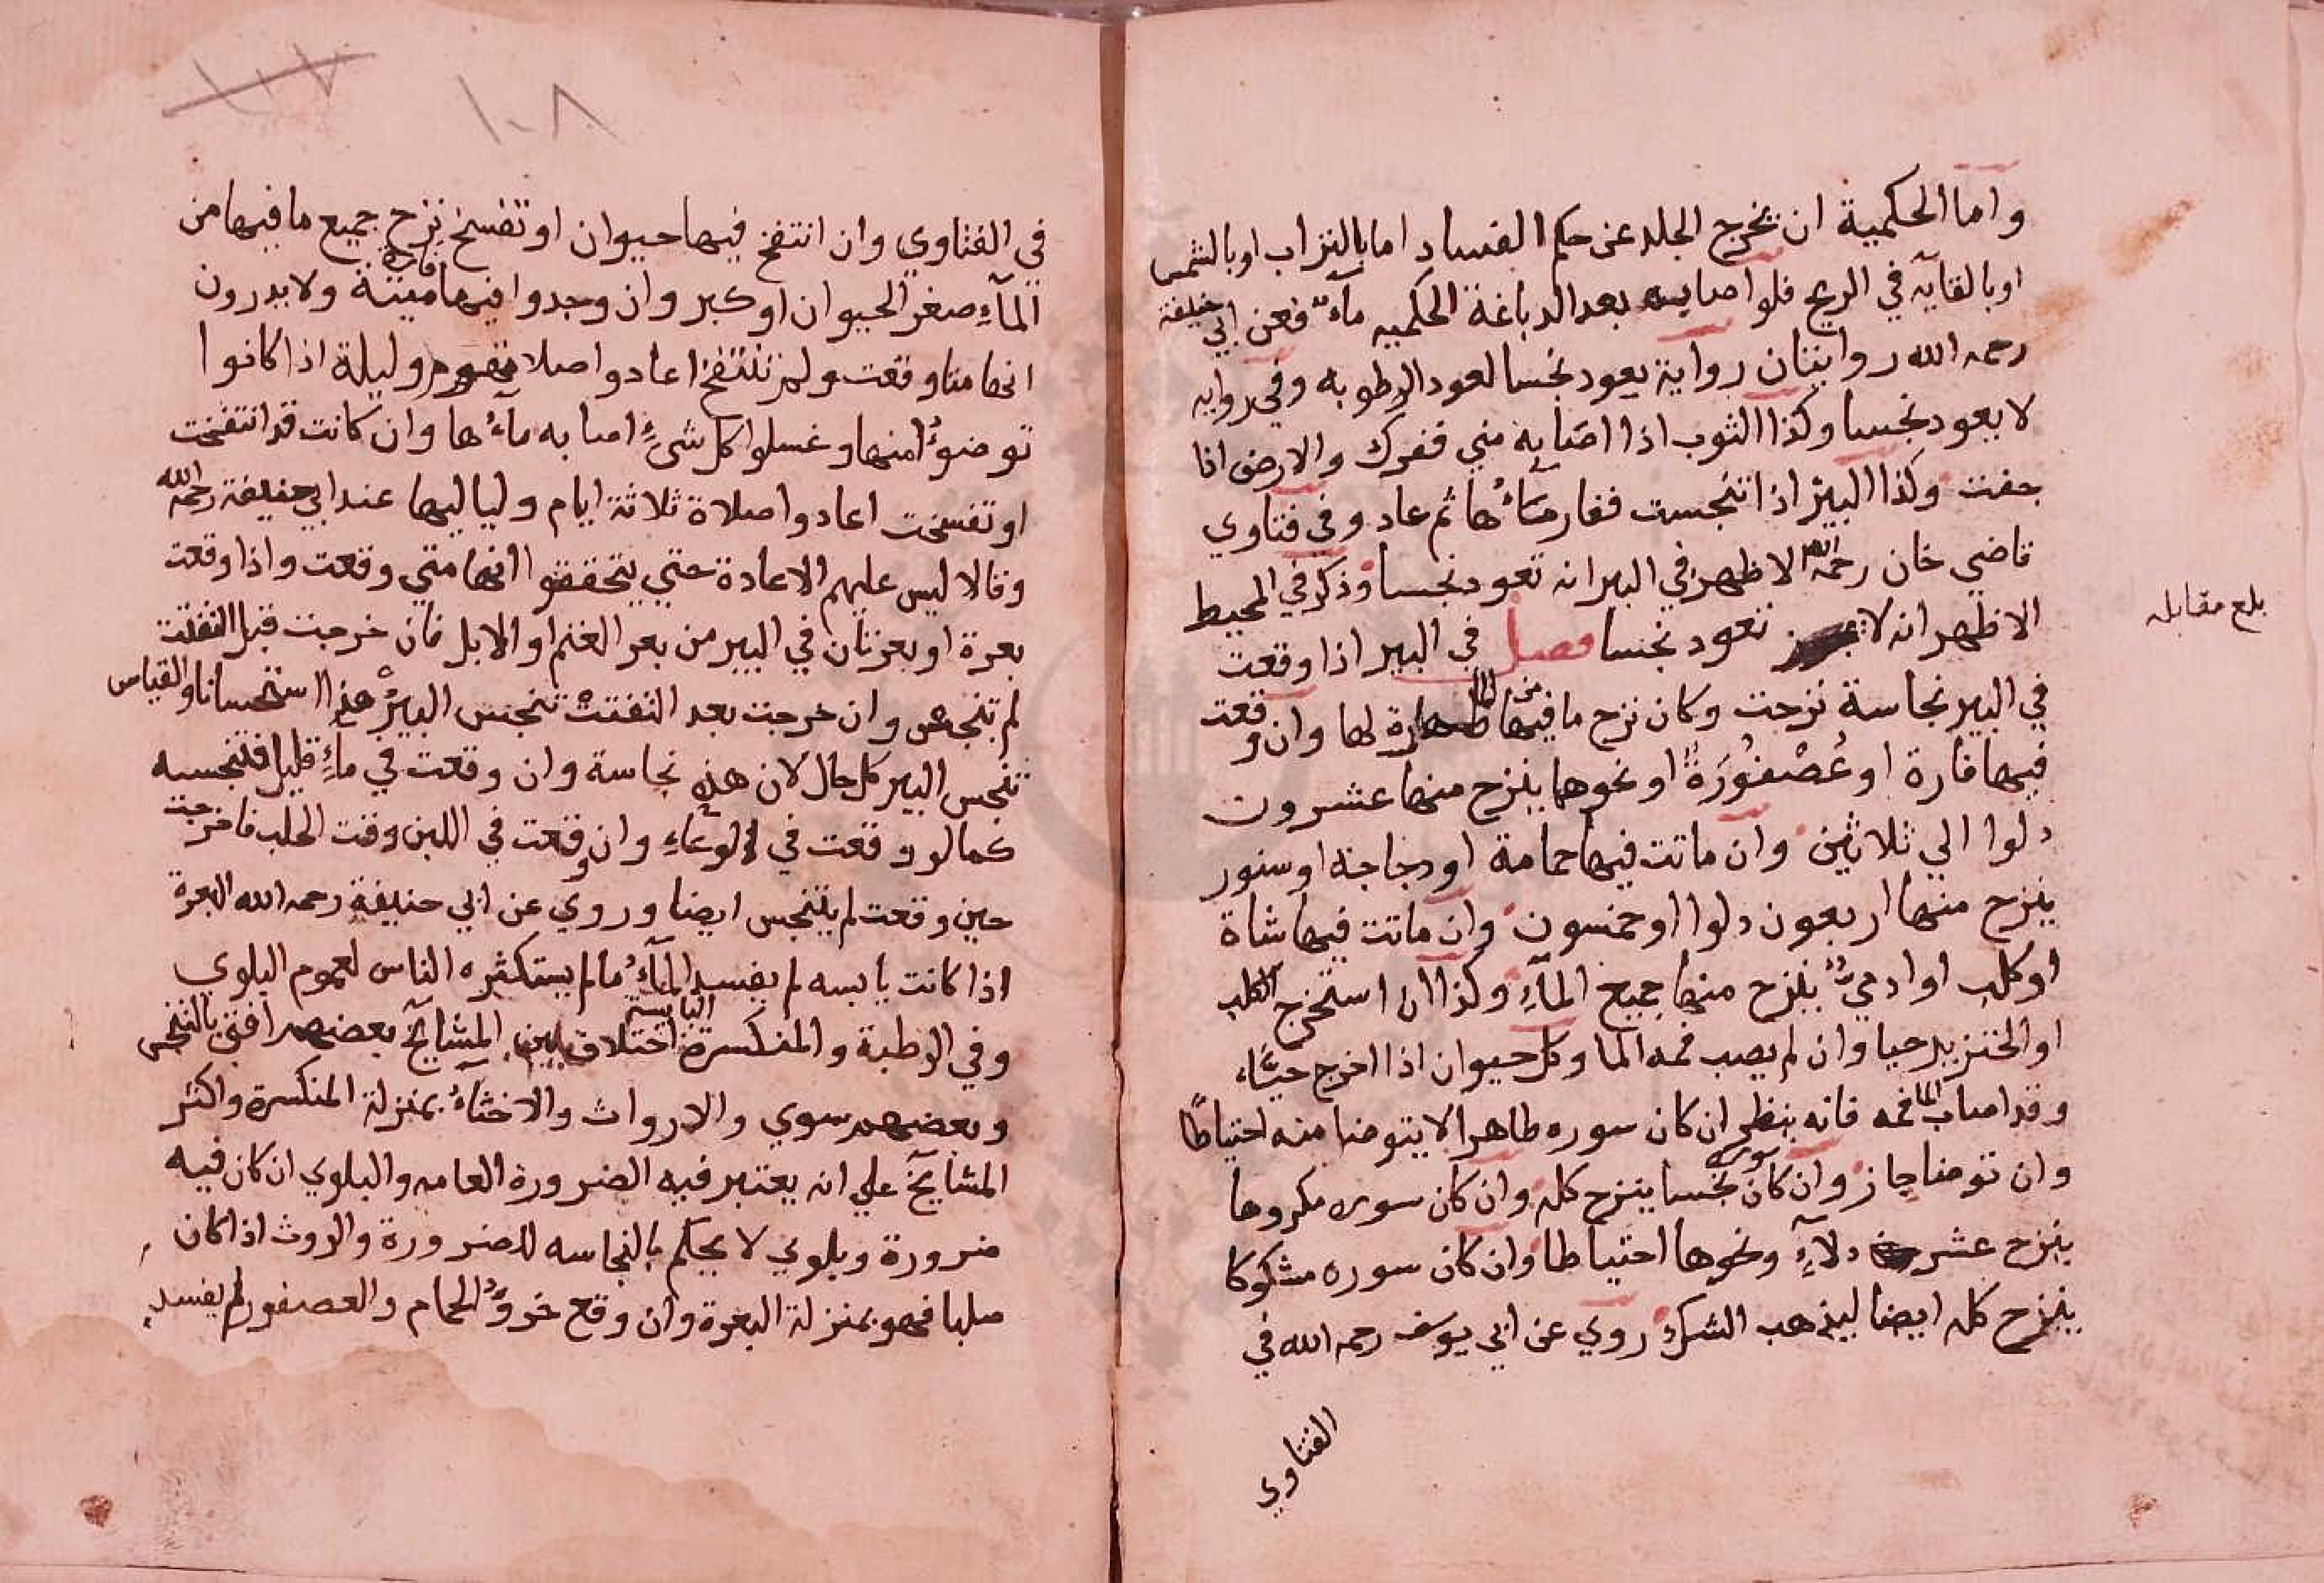 واما الحكمية ان تخرج الجلد عن حكم الفساد اما بالتراب او بالشمس
او بالقايه في الريح فلو اصابه بعد الدباغة الحكميه مآء فعن ابي حنيفة
رحمه الله روايتان رواية يعود نجسا لعود الرطوبه وفي روايه
لا يعود نجسا وكذا الثوب اذا اصابه مني ففرك والارض اذا
جفت وكذا البير اذا تنجست فغار مآءها ثم عاد وفي فتاوي
قاضي خان رحمه الله الاظهر في البير انه تعود نجسا وذكر في المحيط
الاظهر انه لا تعود نجسا فصل في البير اذا وقعت
في البير نجاسة نزحت وكان نزح ما فيها من الما طهارة لها وان وقعت
فيها فارة او عُصْفُورَةٌ او نحوهما ينزح منها عشرون
دلوا الي ثلاثين وان ماتت فيها حمامة او دجاجة او سنور
ينزح منها اربعون دلوا او خمسون وان ماتت فيها شاة
او كلب او ادمي ينزح منها جميع المآء وكذا ان استخرج الكلب
او الخنزير حيا وان لم يصب فمه الما وكل حيوان اذا اخرج حيًّا
وقد اصاب الما فمه فانه ينظر ان كان سوره طاهرا لا يتوضا منه احتياطًا
وان توضا جاز وان كان سوره نجسا ينزح كله وان كان سوره مكروها
ينزح عشر دلآء ونحوها احتياطا وان كان سوره مشكوكا
ينزح كله ايضا ليذهب الشك روي عن ابي يوسف رحمه الله في
الفتاوي
بلغ مقابله
١٠٨
في الفتاوي وان انتفخ فيها حيوان او تفسخ نزح جميع ما فيها من
المآء صغر الحيوان او كبر وان وجدوا فيها فارة ميتة ولا يدرون
انها متا وقعت ولم تنتفخ اعادوا صلا يوم وليلة اذا كانوا
توضوءُا منها وغسلوا كل شيءٍ اصابه مآءُها وان كانت قد انتفخت
او تفسخت اعادوا صلاة ثلاثة ايام ولياليها عند ابي حنيفة رحمه الله
وقالا ليس عليهم الاعادة حتي يتحققوا انها متي وقعت واذا وقعت
بعرة او بعرتان في البير من بعر الغنم او الابل فان خرجت قبل التفتت
لم تتنجس وان خرجت بعد التفتت تنجس البير هذا استحسانا والقياس
تنجس البير كل حال لان هذه نجاسة وان وقعت في مآءٍ قليل فتنجسه
كما لو وقعت في الوعاءِ وان وقعت في اللبن وقت الحلب فاخرجت
حين وقعت لم يتنجس ايضا وروي عن ابي حنيفة رحمه الله البعرة
اذا كانت يابسه لم يفسد المآءُ ما لم يستكثره الناس لعموم البلوي
وفي الرطبة والمنكسرة اليابسة اختلاف بين المشايخ بعضهم افتي بالتنجس
وبعضهم سوي والارواث والاخثآءُ بمنزلة المنكسرة واكثر
المشايخ علي انه يعتبر فيه الضرورة العامه والبلوي ان كان فيه
ضرورة وبلوي لا يحكم بالنجاسه للضرورة والروث اذا كان
صلبا فهو بمنزلة البعرة وان وقع خروءُ الحمام والعصفور لم يفسد